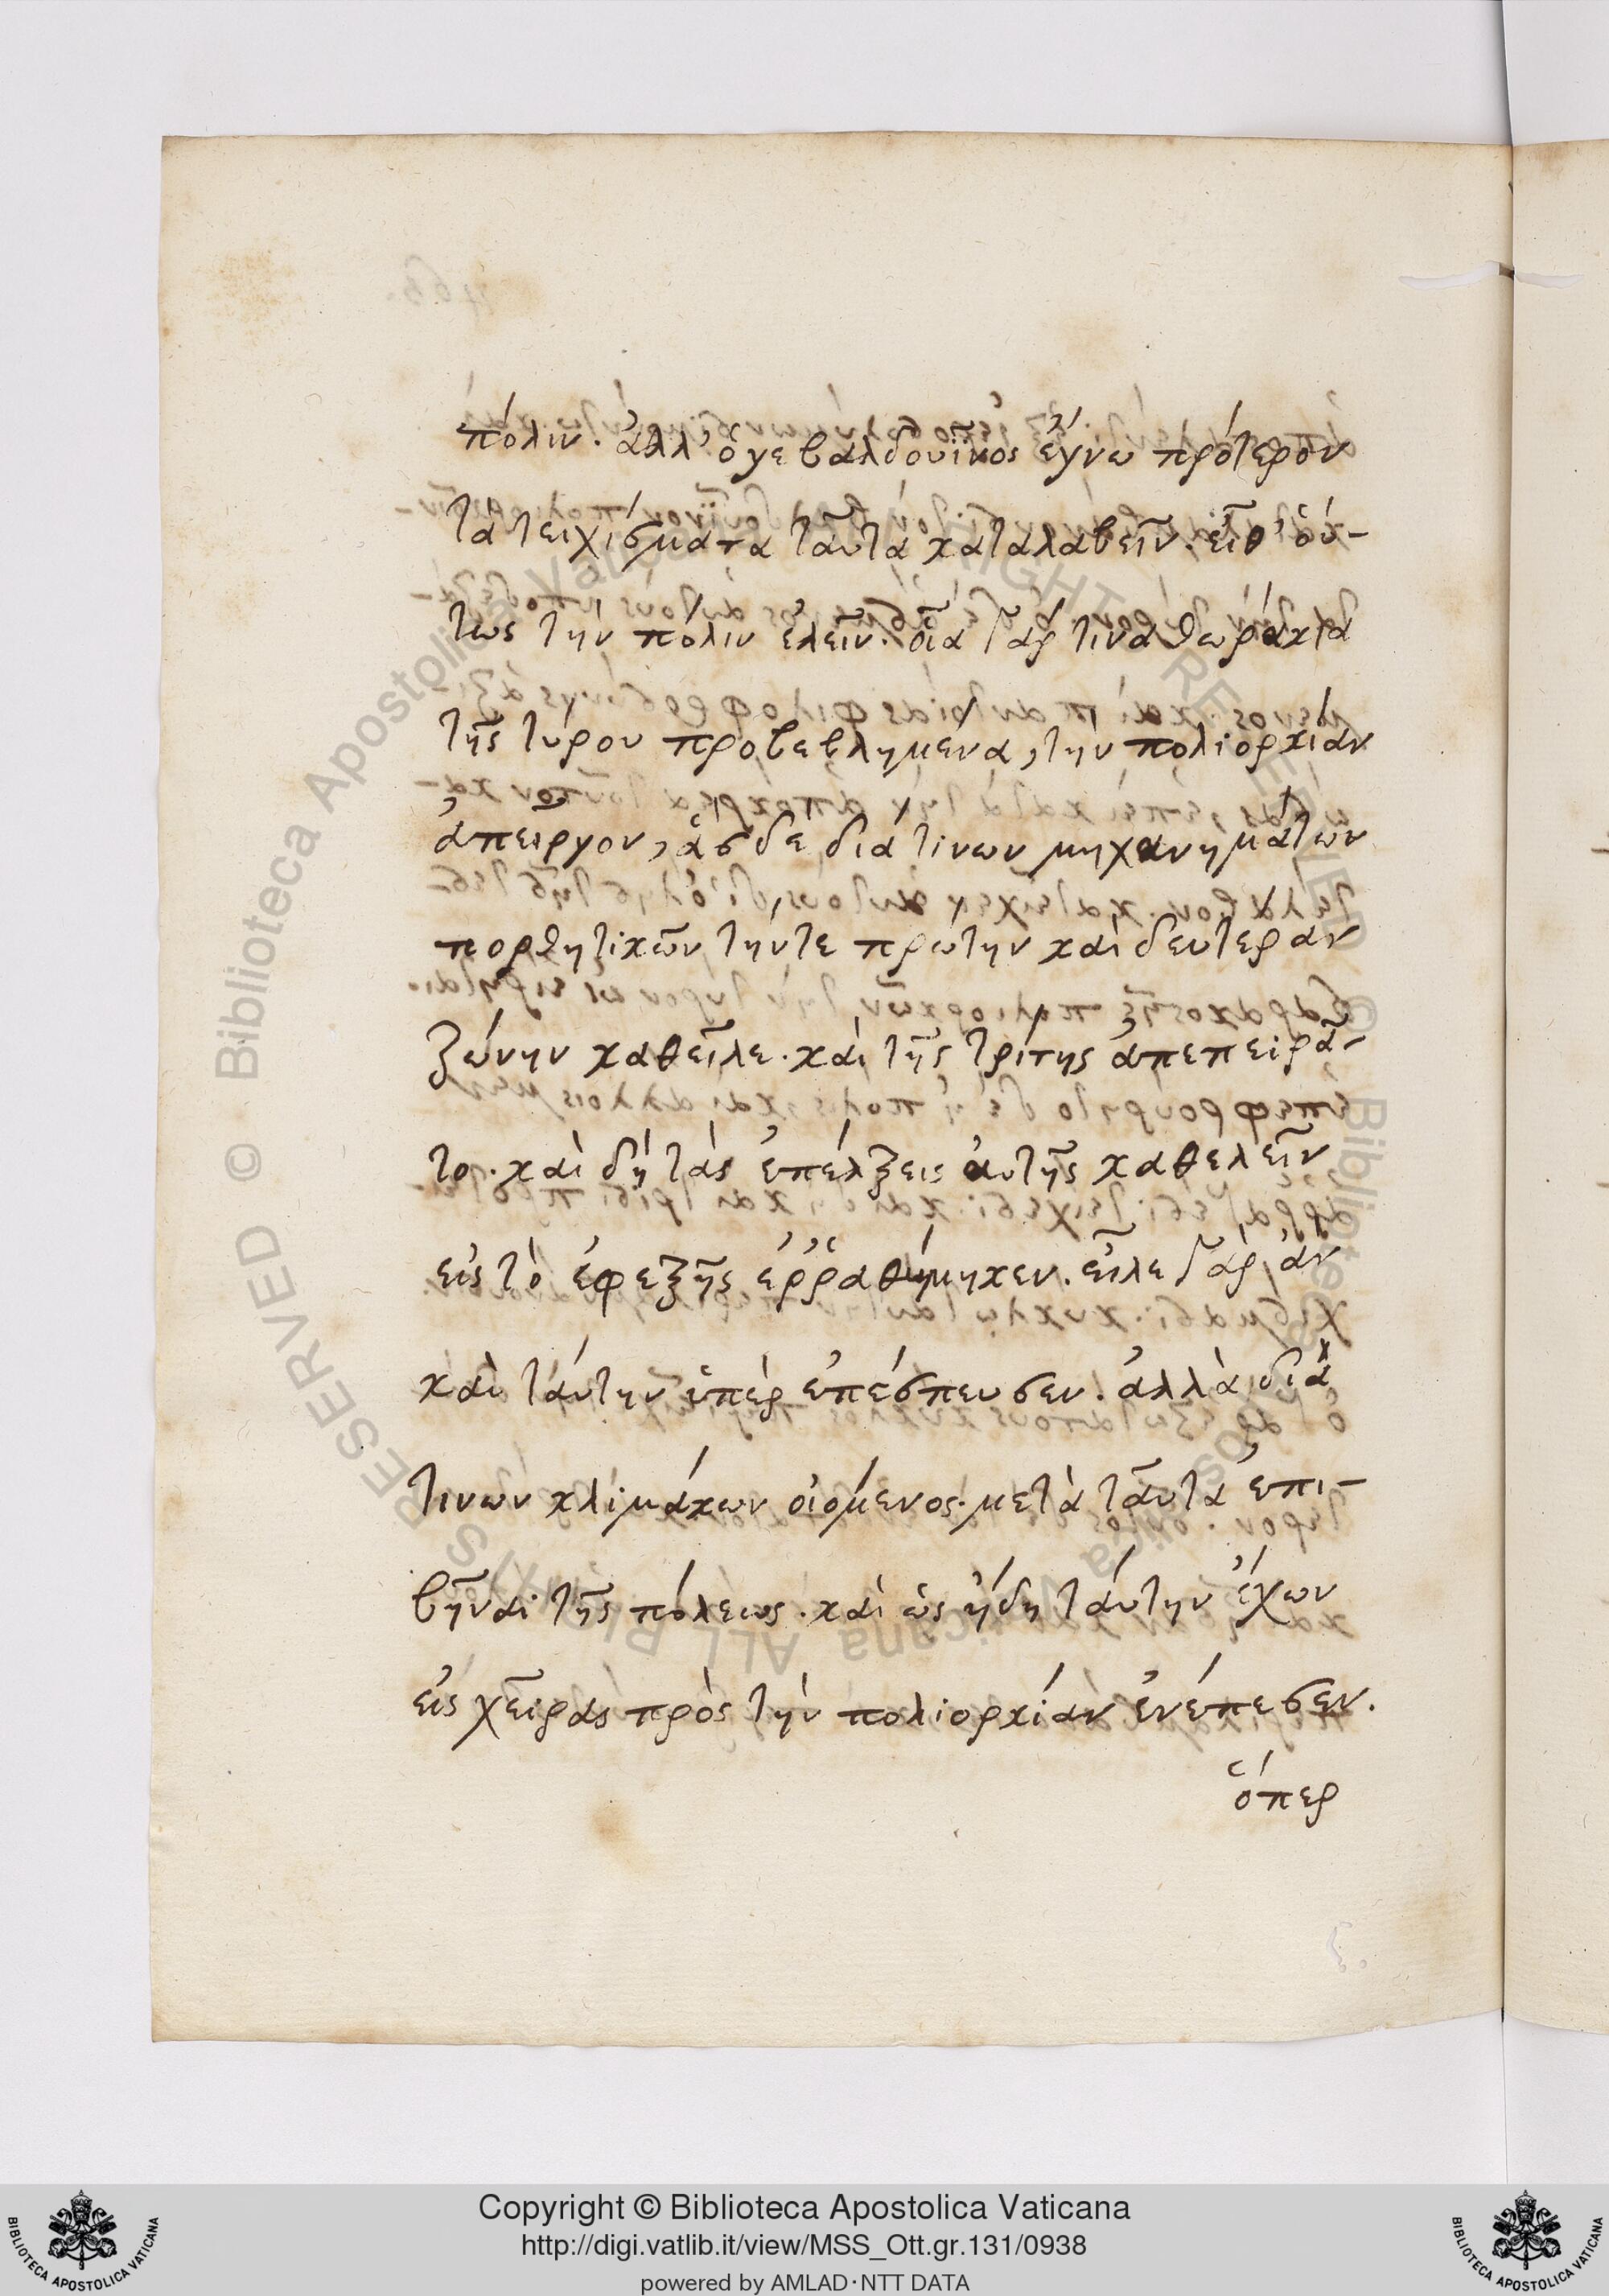 πόλιν. ἀλλ' ὅγε βαλδουῖνος ἔγνω πρότερον
τὰ τειχίσματα ταῦτα καταλαβεῖν. εἶθ' οὕ-
τως τὴν πόλιν ἑλεῖν. οἷα γάρ τινα θωράκια
τῆς τύρου προβεβλημένα, τὴν πολιορκίαν
ἀπεῖργον, ἃς δὲ διά τινων μηχανημάτων
πορθητικῶν τήν τε πρώτην καὶ δευτέραν
ζώνην καθεῖλε. καὶ τῆς τρίτης ἀπεπειρᾶ-
το. καὶ δὴ τὰς ἐπάλξεις αὐτῆς καθελεῖν
εἰς τὸ ἐφεξῆς ἐῤῥαθύμηκεν. εἷλε γὰρ ἂν
καὶ ταύτην ὑπὲρ ἐπέσπευσεν. ἀλλὰ διά
τινων κλιμάκων οἰόμενος. μετὰ ταῦτα ἐπι-
βῆναι τῆς πόλεως. καὶ ὡς ἤδη ταύτην ἔχων
εἰς χεῖρας πρὸς τὴν πολιορκίαν ἐνέπεσεν.
ὅπερ
Copyright © Biblioteca Apostolica Vaticana
http://digi.vatlib.it/view/MSS_Ott.gr.131/0938
powered by AMLAD·NTT DATA
BIBLIOTECA APOSTOLICA VATICANA
BIBLIOTECA APOSTOLICA VATICANA